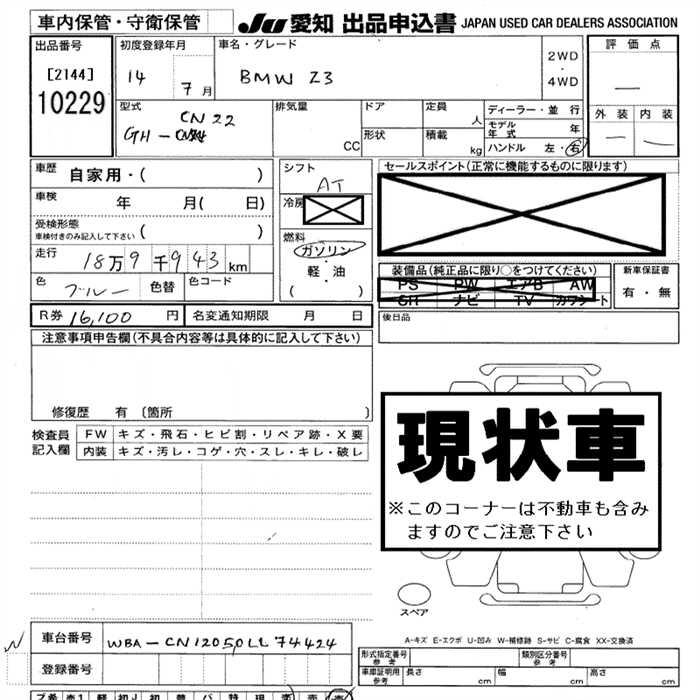 車内保管・守衛保管
JU 愛知 出品申込書 JAPAN USED CAR DEALERS ASSOCIATION
出品番号
[2144]
10229
初度登録年月
14 7月
車名・グレード
BMW Z3
2WD
・
4WD
評価点
―
外装 内装
― ―
型式
CN22
GH-
排気量
CC
ドア
形状
定員
人
積載
kg
ディーラー・並行
モデル年式 年
ハンドル 左・右
車歴
自家用・( )
車検
年 月( 日)
受検形態
車検付きのみ記入して下さい ( )
走行
18万9千943km
色
ブルー
色替
色コード
シフト
AT
冷房
燃料
ガソリン
・
軽・油
( )
セールスポイント(正常に機能するものに限ります)
装備品(純正品に限り○をつけてください)
PS PW エアB AW
SH ナビ TV カワシート
新車保証書
有・無
後日品
R券 16,100 円
名変通知期限 月 日
注意事項申告欄(不具合内容等は具体的に記入して下さい)
修復歴 有 [箇所 ]
検査員記入欄
FW キズ・飛石・ヒビ割・リペア跡・X要
内装 キズ・汚レ・コゲ・穴・スレ・キレ・破レ
現状車
※このコーナーは不動車も含み
ますのでご注意下さい
スペア
A-キズ E-エクボ U-凹み W-補修跡 S-サビ C-腐食 XX-交換済
車台番号
WBA-CN12050LL74424
登録番号
形式指定番号
参考
類別区分番号
参考
車庫証明用
参考
長さ cm
幅 cm
高さ cm